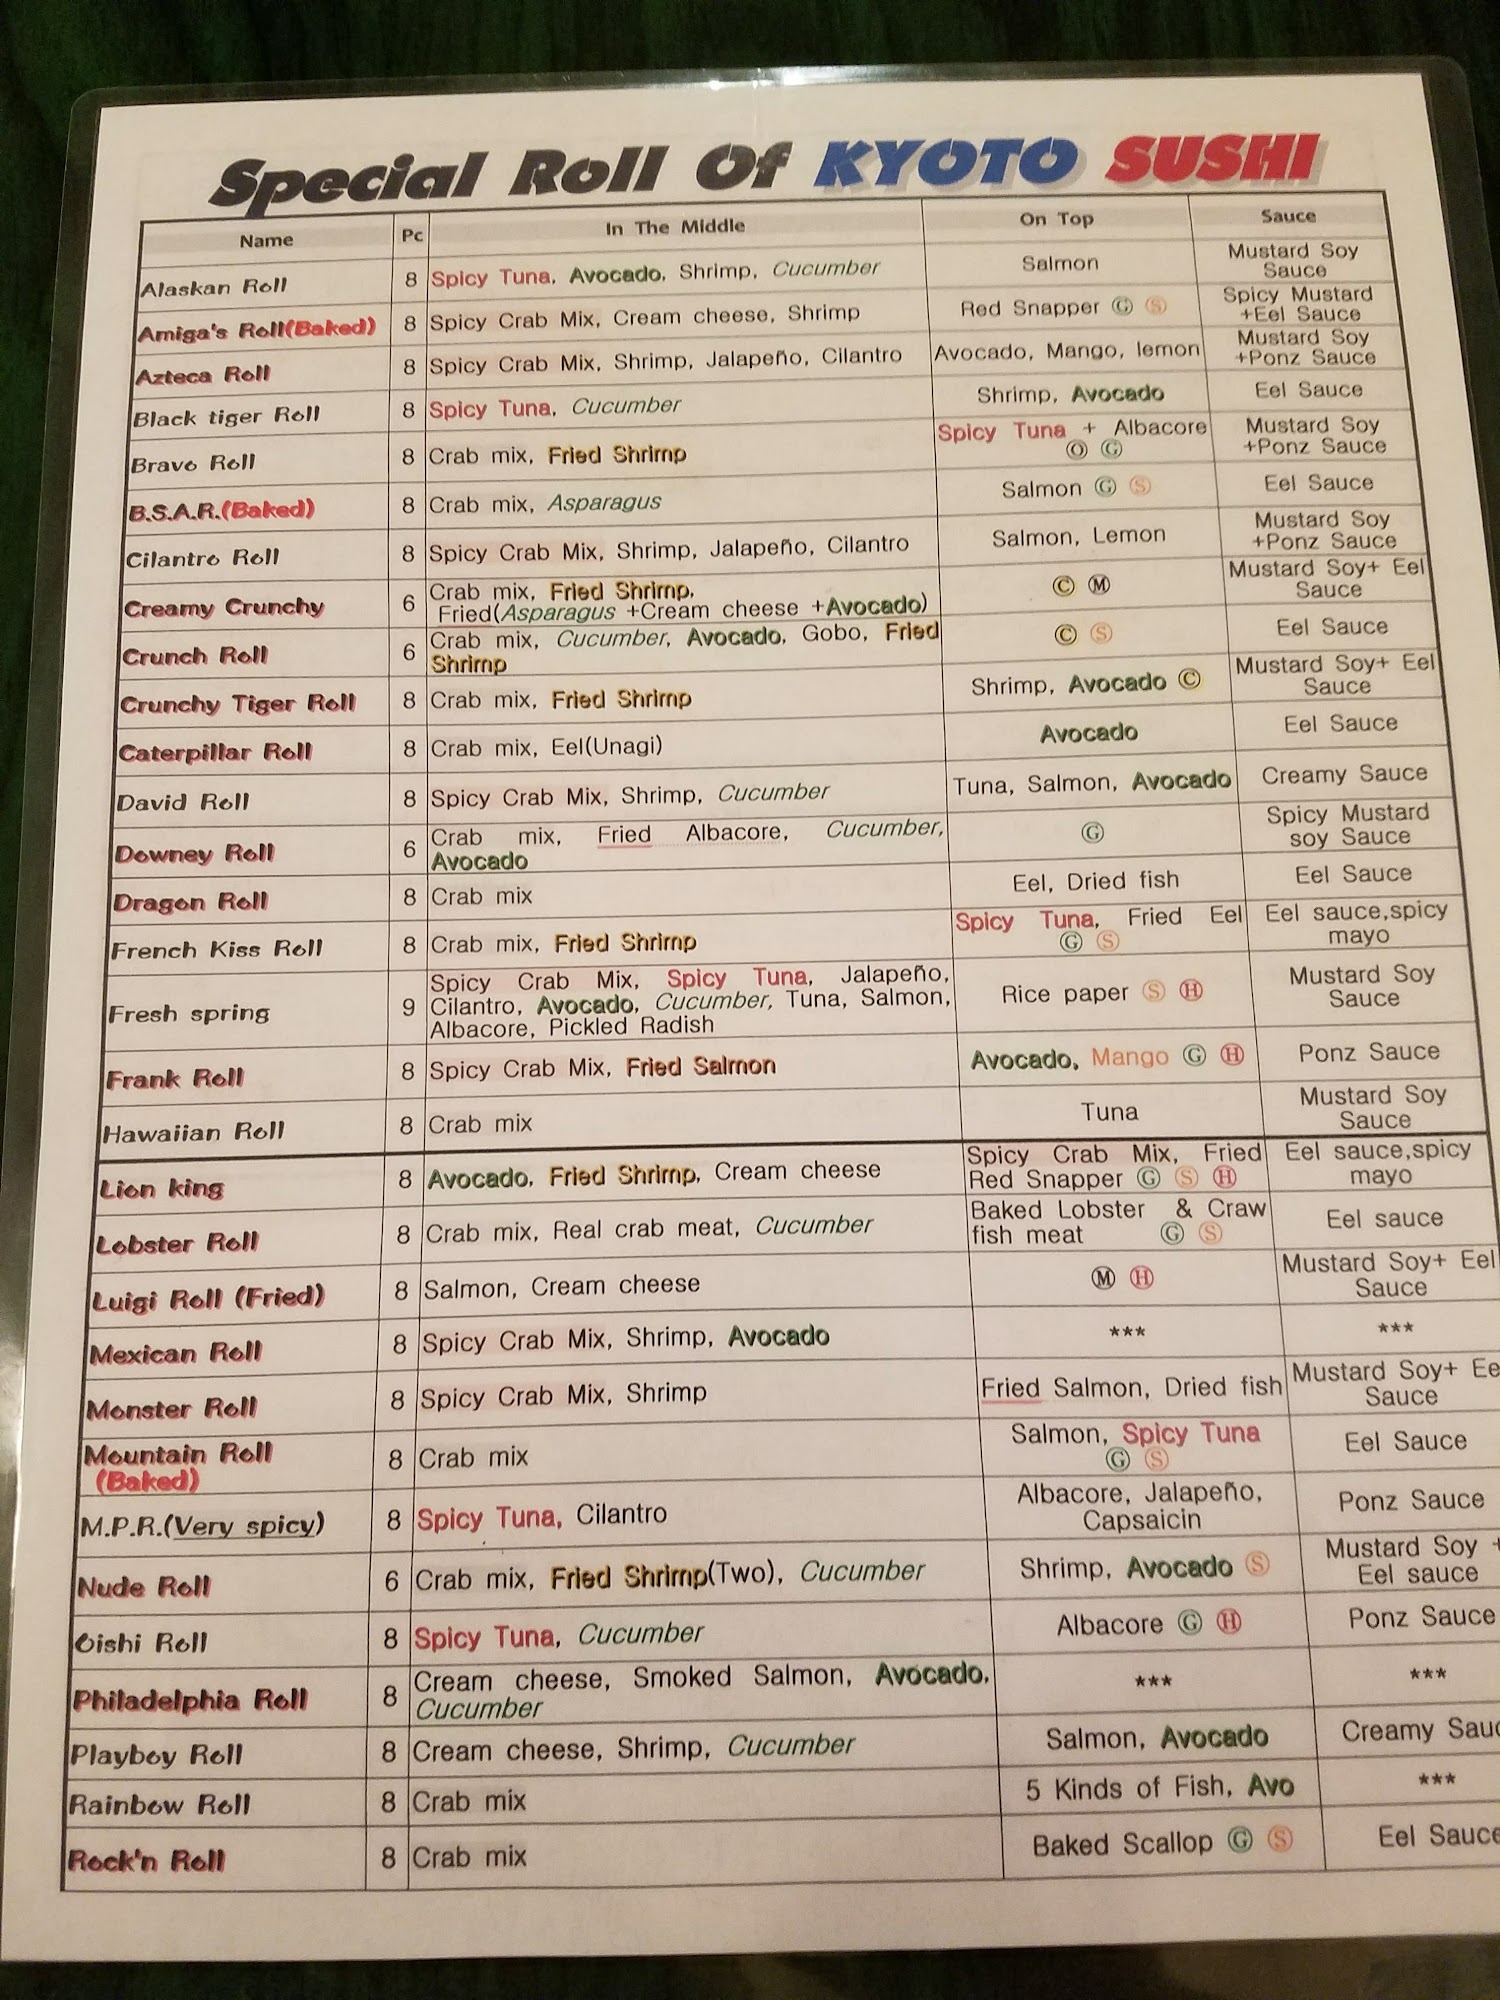 Special Roll Of KYOTO SUSHI
Name Pc In The Middle On Top Sauce
Alaskan Roll 8 Spicy Tuna, Avocado, Shrimp, Cucumber Salmon Mustard Soy Sauce
Amiga's Roll(Baked) 8 Spicy Crab Mix, Cream cheese, Shrimp Red Snapper Ⓖ Ⓢ Spicy Mustard +Eel Sauce
Azteca Roll 8 Spicy Crab Mix, Shrimp, Jalapeño, Cilantro Avocado, Mango, lemon Mustard Soy +Ponz Sauce
Black tiger Roll 8 Spicy Tuna, Cucumber Shrimp, Avocado Eel Sauce
Bravo Roll 8 Crab mix, Fried Shrimp Spicy Tuna + Albacore Ⓞ Ⓖ Mustard Soy +Ponz Sauce
B.S.A.R.(Baked) 8 Crab mix, Asparagus Salmon Ⓖ Ⓢ Eel Sauce
Cilantro Roll 8 Spicy Crab Mix, Shrimp, Jalapeño, Cilantro Salmon, Lemon Mustard Soy +Ponz Sauce
Creamy Crunchy 6 Crab mix, Fried Shrimp, Fried(Asparagus +Cream cheese +Avocado) Ⓒ Ⓜ Mustard Soy+ Eel Sauce
Crunch Roll 6 Crab mix, Cucumber, Avocado, Gobo, Fried Shrimp Ⓒ Ⓢ Eel Sauce
Crunchy Tiger Roll 8 Crab mix, Fried Shrimp Shrimp, Avocado Ⓒ Mustard Soy+ Eel Sauce
Caterpillar Roll 8 Crab mix, Eel(Unagi) Avocado Eel Sauce
David Roll 8 Spicy Crab Mix, Shrimp, Cucumber Tuna, Salmon, Avocado Creamy Sauce
Downey Roll 6 Crab mix, Fried Albacore, Cucumber, Avocado Ⓖ Spicy Mustard soy Sauce
Dragon Roll 8 Crab mix Eel, Dried fish Eel Sauce
French Kiss Roll 8 Crab mix, Fried Shrimp Spicy Tuna, Fried Eel Ⓖ Ⓢ Eel sauce,spicy mayo
Fresh spring 9 Spicy Crab Mix, Spicy Tuna, Jalapeño, Cilantro, Avocado, Cucumber, Tuna, Salmon, Albacore, Pickled Radish Rice paper Ⓢ Ⓗ Mustard Soy Sauce
Frank Roll 8 Spicy Crab Mix, Fried Salmon Avocado, Mango Ⓖ Ⓗ Ponz Sauce
Hawaiian Roll 8 Crab mix Tuna Mustard Soy Sauce
Lion king 8 Avocado, Fried Shrimp, Cream cheese Spicy Crab Mix, Fried Red Snapper Ⓖ Ⓢ Ⓗ Eel sauce,spicy mayo
Lobster Roll 8 Crab mix, Real crab meat, Cucumber Baked Lobster & Craw fish meat Ⓖ Ⓢ Eel sauce
Luigi Roll (Fried) 8 Salmon, Cream cheese Ⓜ Ⓗ Mustard Soy+ Eel Sauce
Mexican Roll 8 Spicy Crab Mix, Shrimp, Avocado *** ***
Monster Roll 8 Spicy Crab Mix, Shrimp Fried Salmon, Dried fish Mustard Soy+ Ee Sauce
Mountain Roll (Baked) 8 Crab mix Salmon, Spicy Tuna Ⓖ Ⓢ Eel Sauce
M.P.R.(Very spicy) 8 Spicy Tuna, Cilantro Albacore, Jalapeño, Capsaicin Ponz Sauce
Nude Roll 6 Crab mix, Fried Shrimp(Two), Cucumber Shrimp, Avocado Ⓢ Mustard Soy + Eel sauce
Oishi Roll 8 Spicy Tuna, Cucumber Albacore Ⓖ Ⓗ Ponz Sauce
Philadelphia Roll 8 Cream cheese, Smoked Salmon, Avocado, Cucumber *** ***
Playboy Roll 8 Cream cheese, Shrimp, Cucumber Salmon, Avocado Creamy Sauc
Rainbow Roll 8 Crab mix 5 Kinds of Fish, Avo ***
Rock'n Roll 8 Crab mix Baked Scallop Ⓖ Ⓢ Eel Sauce